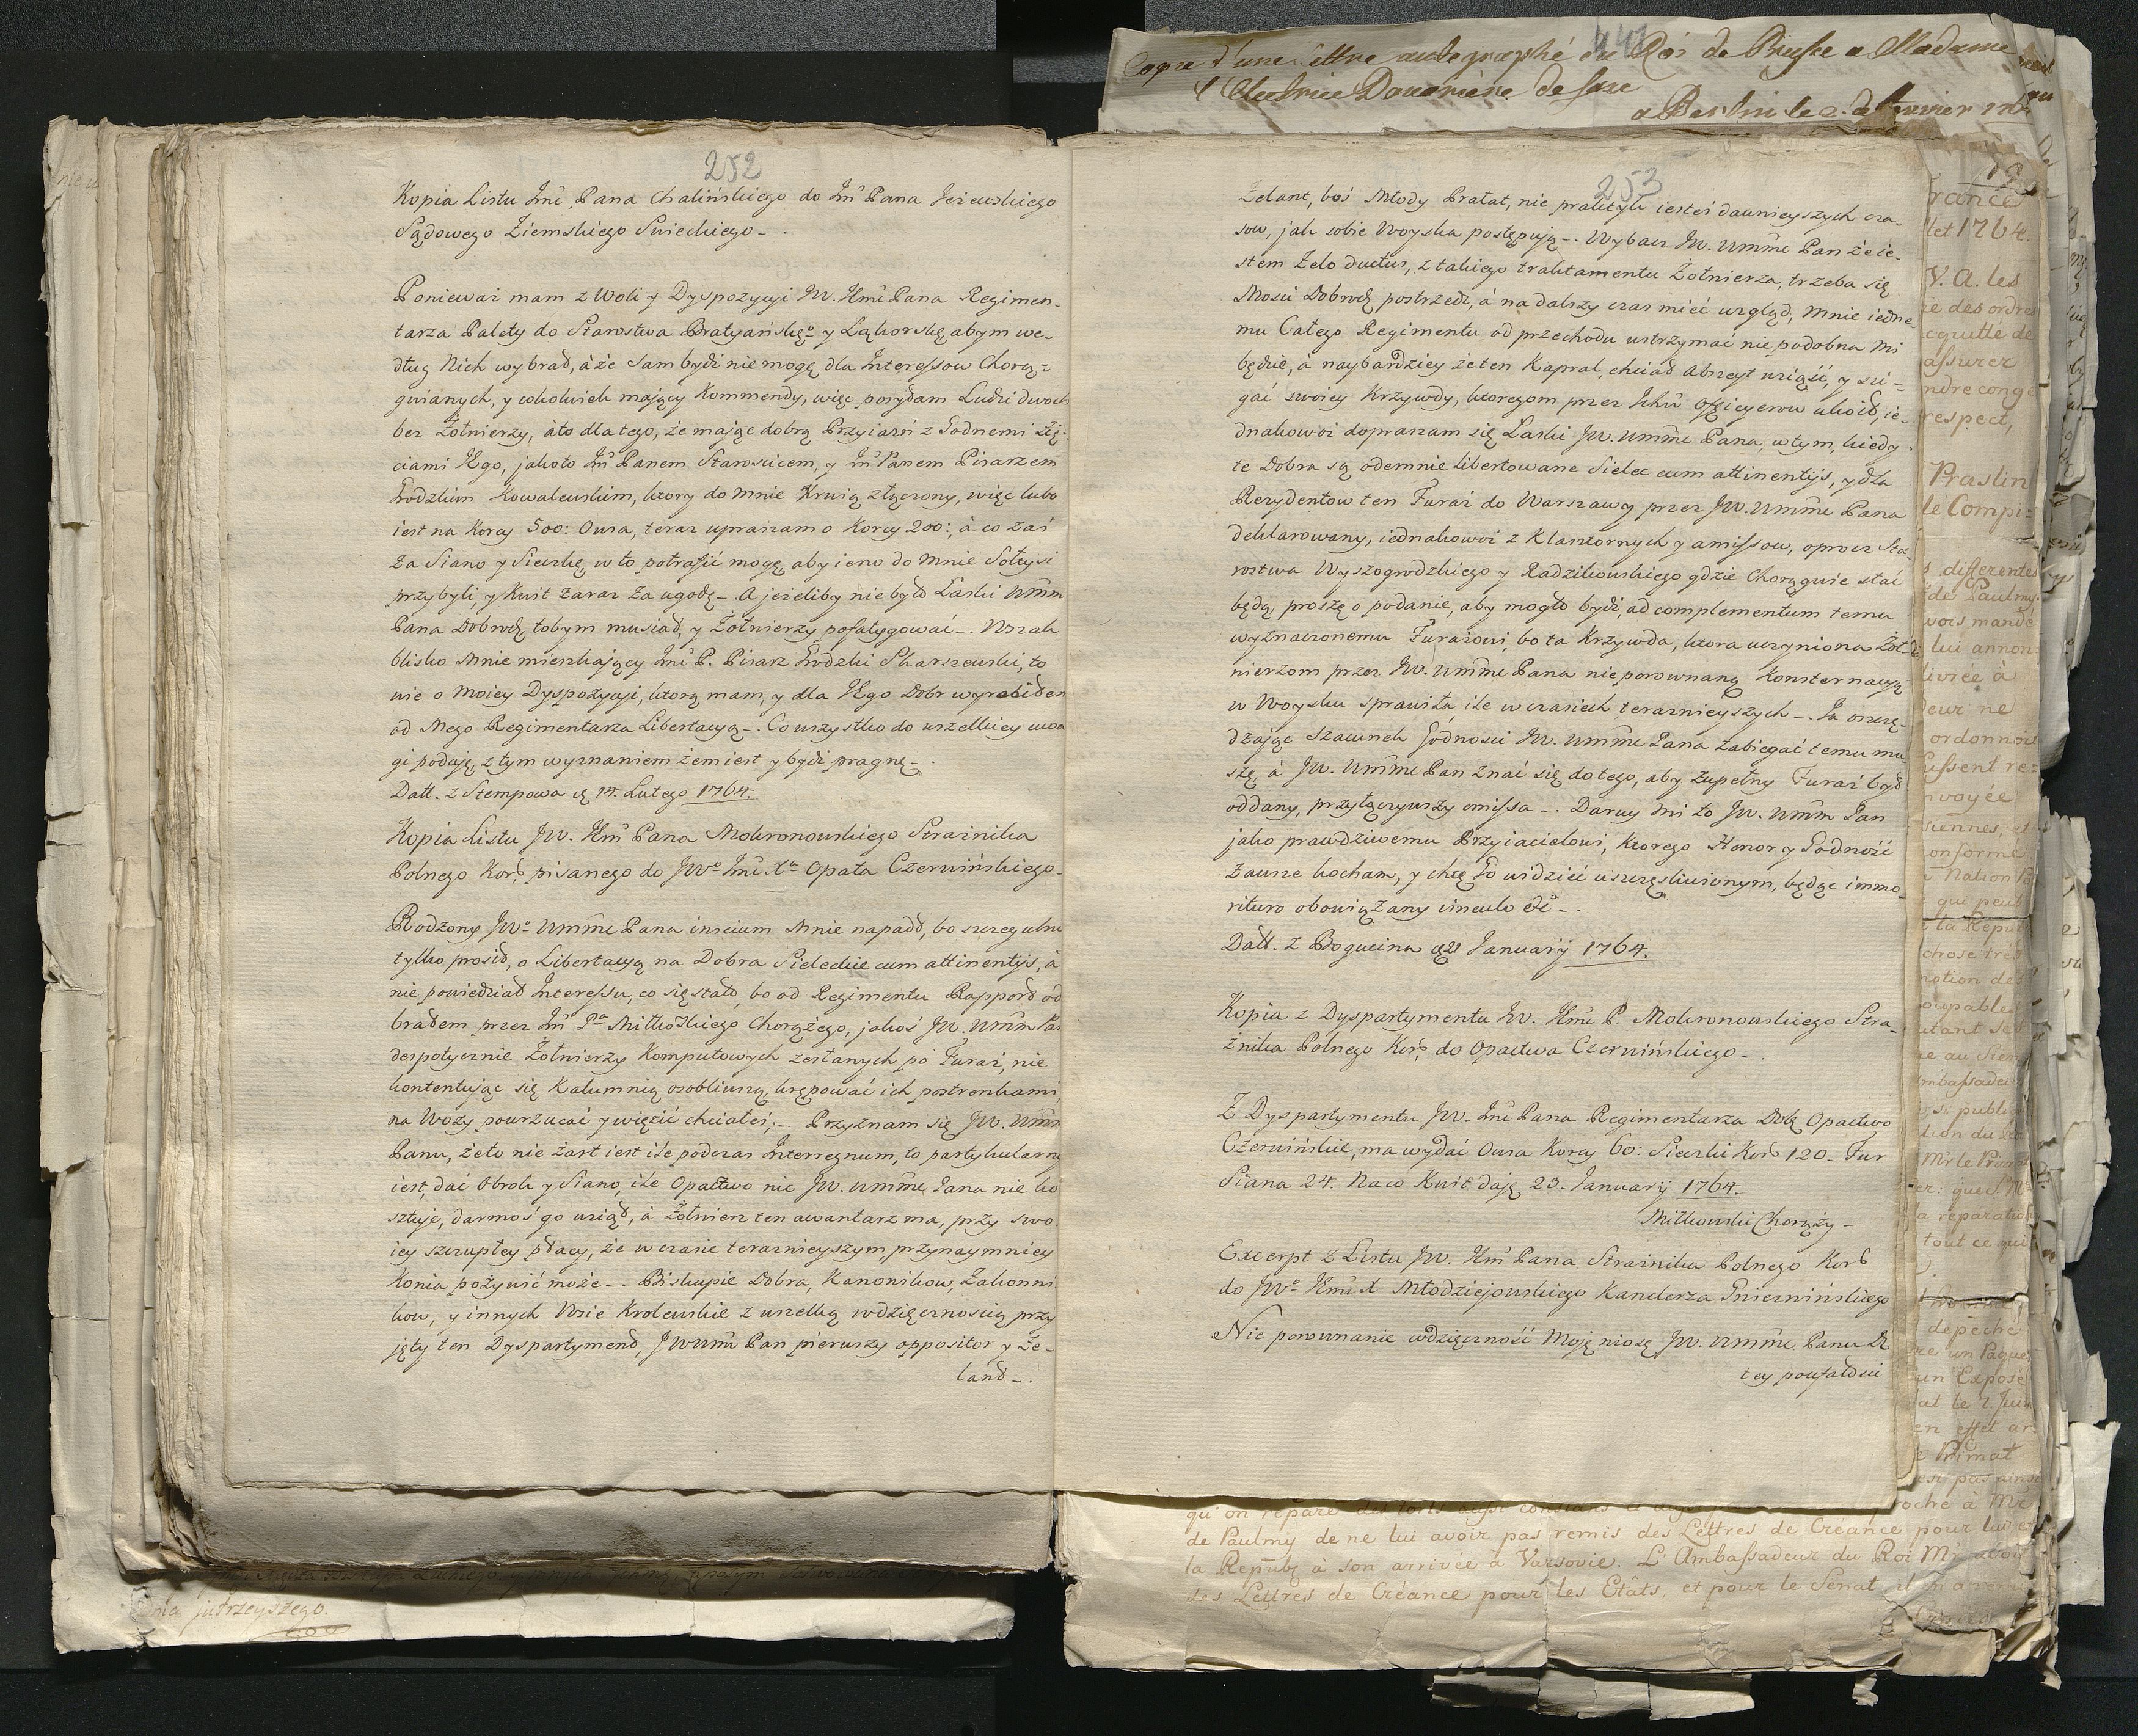 252
Kopia Listu Jmć Pana Chalińskiego do Jmć Pana Jeżewskiego
Sądowego Ziemskiego Swieckiego -.
Ponieważ mam z Woli y Dyspozycyi JW. Jmć Pana Regimen-
tarza Palety do Starostwa Bratyańskiego y Ląkorskie, abym we-
dług Nich wybrał, à że Sam bydź nie mogę dla Interessow Chorą-
gwianych, y cokolwiek mający Kommendy, więc posyłam Ludzi dwoch
bez Zołnierzy, à to dla tego, że mając dobrą Przyiaźń z Godnemi Zię-
ciami Jego, jakoto Jmć Panem Starościcem, y Jmć Panem Pisarzem
Grodzkim Kowalewskim, ktory do mnie Krwią złączony, więc lubo
iest na Korcy 500: Owsa, teraz upraszam o Korcy 200: à co zaś
za Siano y Sieczkę, w to potrafić mogę, aby ieno do mnie Sołtysi
przybyli, y Kwit zaraz za ugodę -. A jeżeliby nie było Łaski Wmm
Pana Dobrodź, tobym musiał, y Zołnierzy pofatygować -. Wszak
blisko mnie mieszkający Jmć P. Pisarz Grodzki Skarszewski, to
wie o moiey Dyspozycyi, ktorą mam, y dla Jego Dobr wyrobiłem
od Mego Regimentarza Libertacyą -. Co wszystko do wszelkiey uwa
gi podaję, z tym wyznaniem żem iest y bydź pragnę -.
Datt. z Stempowa d. 14. Lutego 1764.
Kopia Listu JW. Jmć Pana Mokronowskiego Strażnika
Polnego Kor, pisanego do JWo Jmć Xa Opata Czerwińskiego -
Rodzony JWo Wmme Pana inscium mnie napadł, bo szczegulnie
tylko prosił, o Libertacyą na Dobra Sieleckie cum attinentijs, à
nie powiedział Interessu, co się stało, bo od Regimentu Rapport ode
brałem przez Jmć Pa Mitkowskiego Chorążego, jakoś JW. Wmm Pan
despotycznie Zołnierzy Komputowych zesłanych po Furaż, nie
kontentując się Kalumnią osobliwszą, krępować ich postronkami,
na Wozy powrzucać y więzić chciałeś; -. Przyznam się JW. Wmm
Panu, że to nie żart iest ile podczas Interregnum, to partykularny
iest, dać Obrok y Siano, ile Opactwo nic JW. Wmme Pana nie ko
sztuje, darmoś go wziął, à Zołnierz ten awantarz ma, przy swo-
iey szczupłey płacy, że w czasie teraznieyszym, przynaymniey
Konia pożywić może -. Biskupie Dobra, Kanonikow, Zakonni-
kow, y innych Wsie Krolewskie z wszelką wdzięcznością przy
jęty ten Dyspartyment, JW Wmm Pan pierwszy oppositor y Ze-
lant -.
253
Zelant, boś Młody Prałat, nie praktyk iesteś dawnieyszych cza-
sow, jak sobie Woyska postępują -. Wybacz JW. Wmme Pan że ie-
stem Zelo ductus, z takiego traktamentu Zołnierza, trzeba się
Mości Dobrodź, postrzedz, à na dalszy czas mieć wzgląd, mnie iedne-
mu Całego Regimentu od przechodu wstrzymać nie podobna mi
będzie, à naybardziey że ten Kapral, chciał Abszeyt wziąść, y sci-
gać swoiey Krzywdy, ktoregom przez Ichm Officyerow ukoił, ie-
dnakowoż dopraszam się Łaski JW. Wmme Pana, w tym, kiedy
te Dobra są odemnie libertowane Sielec cum attinentijs, y dla
Rezydentow ten Furaż do Warszawy przez JW. Wmme Pana
deklarowany, iednakowoż z Klasztornych y amissow, oprocz Sta-
rostwa Wyszogrodzkiego y Radzikowskiego gdzie Chorągwie stać
będą, proszę o podanie, aby mogło bydź, ad complementum temu
wyznaczonemu Furażowi, bo ta Krzywda, ktora uczyniona Zoł-
nierzom przez JW. Wmme Pana nieporownaną Konsternacyą
w Woysku sprawiła ile w czasiech teraznieyszych -. Ja oszczę-
dzając Szacunek Godności JW. Wmme Pana zabiegać temu mu-
szę, à JW. Wmme Pan znać się do tego, aby zupełny Furaż był
oddany, przyłączywszy emissa -. Daruy mi to JW. Wmm Pan
jako prawdziwemu Przyiacielowi, ktorego Honor y Godność
zawsze kocham, y chcę Go widzieć uszczęśliwionym, będąc immo-
rituro obowiązany vinculo etc -.
Datt. z Bogucina d. 21 Januarij 1764.
Kopia z Dyspartymentu JW. Jmć P. Mokronowskiego Stra-
żnika Polnego Kor, do Opactwa Czerwińskiego -.
Z Dyspartymentu JW. Jmć Pana Regimentarza Dobr Opactwo
Czerwińskie, ma wydać Owsa Korcy 60: Sieczki Kor 120. Fur
Siana 24. Na co Kwit daję 23. Januarij 1764.
Mitkowski Chorąży -
Excerpt z Listu JW. Jmć Pana Strażnika Polnego Kor
do JWo Jmć X Młodziejowskiego Kanclerza Gnieznińskiego
Nie porownanie wdzięczność Moję niosę JW. Wmme Panu Do
tey poufałości
Copie d'une lettre autographe du Roi de Prusse a Madame
l'Electrice Douariere de Saxe
a Berlin le 2. de
France
let 1764.
V. A. les
re des ordres
acquitté de
assurer
ndre congé
respect,
Praslin
le Compi=
s differentes
de Paulmy
avois mandé
lui annon
livrée à
deur ne
ordonnoit
fussent re=
nvoyée
siennes, et
conforme
Nation
qui peut
la Repub
chose très
notion des
coupables
autant ses
mbassade
si public
tion du
Mr le Primat
la reparation
tout ce qui
depêche
re un Paquet
un Exposé
at le 2. Juin
en effet ar
Primat
pas ainsi
qu'on repare des torts aussi constans
oche à Mr
de Paulmy de ne lui avoir pas remis des Lettres de Créance pour lui et
la Republ à son arrivée à Varsovie. L'Ambassadeur du Roi Mr avoit
des Lettres de Créance pour les Etâts, et pour le Senat, il n'a
nia jutrzeyszego.